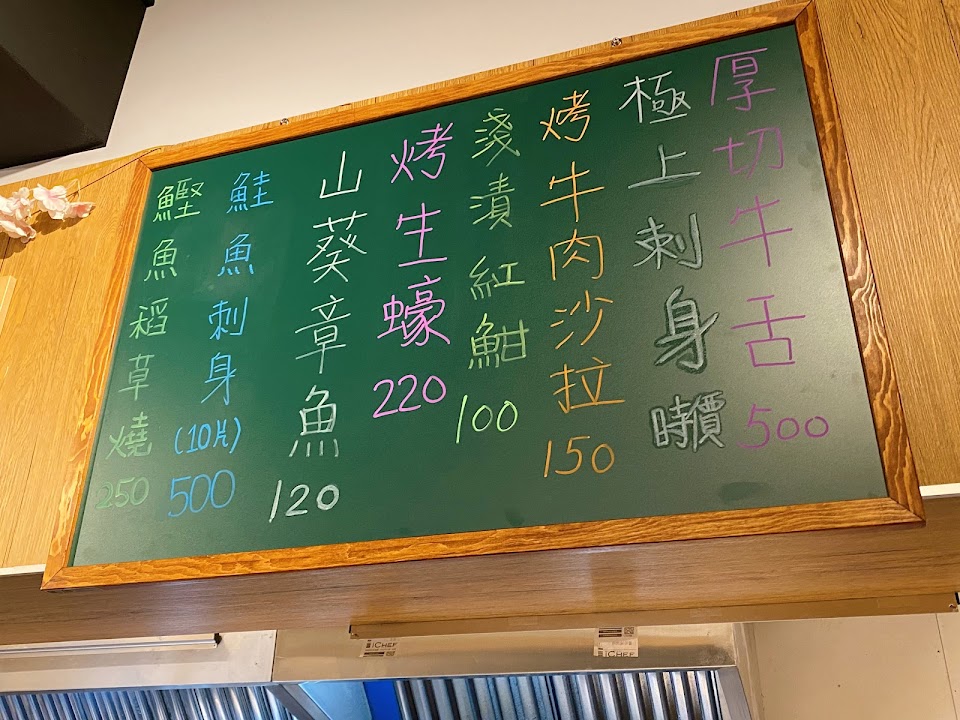 厚切牛舌 500
極上刺身 時價
烤牛肉沙拉 150
淺漬紅魽 100
烤生蠔 220
山葵章魚 120
鮭魚刺身(10片) 500
鰹魚稻草燒 250
iCHEF
iCHEF